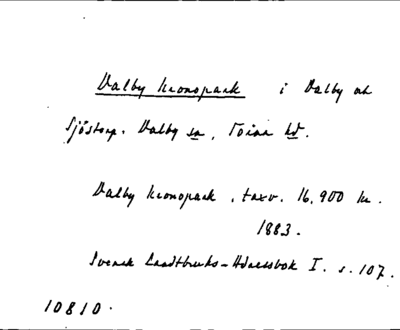 Dalby kronopark i Dalby och
Sjöstorp. Dalby sn, Torna hd.
Dalby kronopark, taxv. 16,900 kr.
1883.
Svensk Landtbruks-Adressbok I. s. 107.
10810.